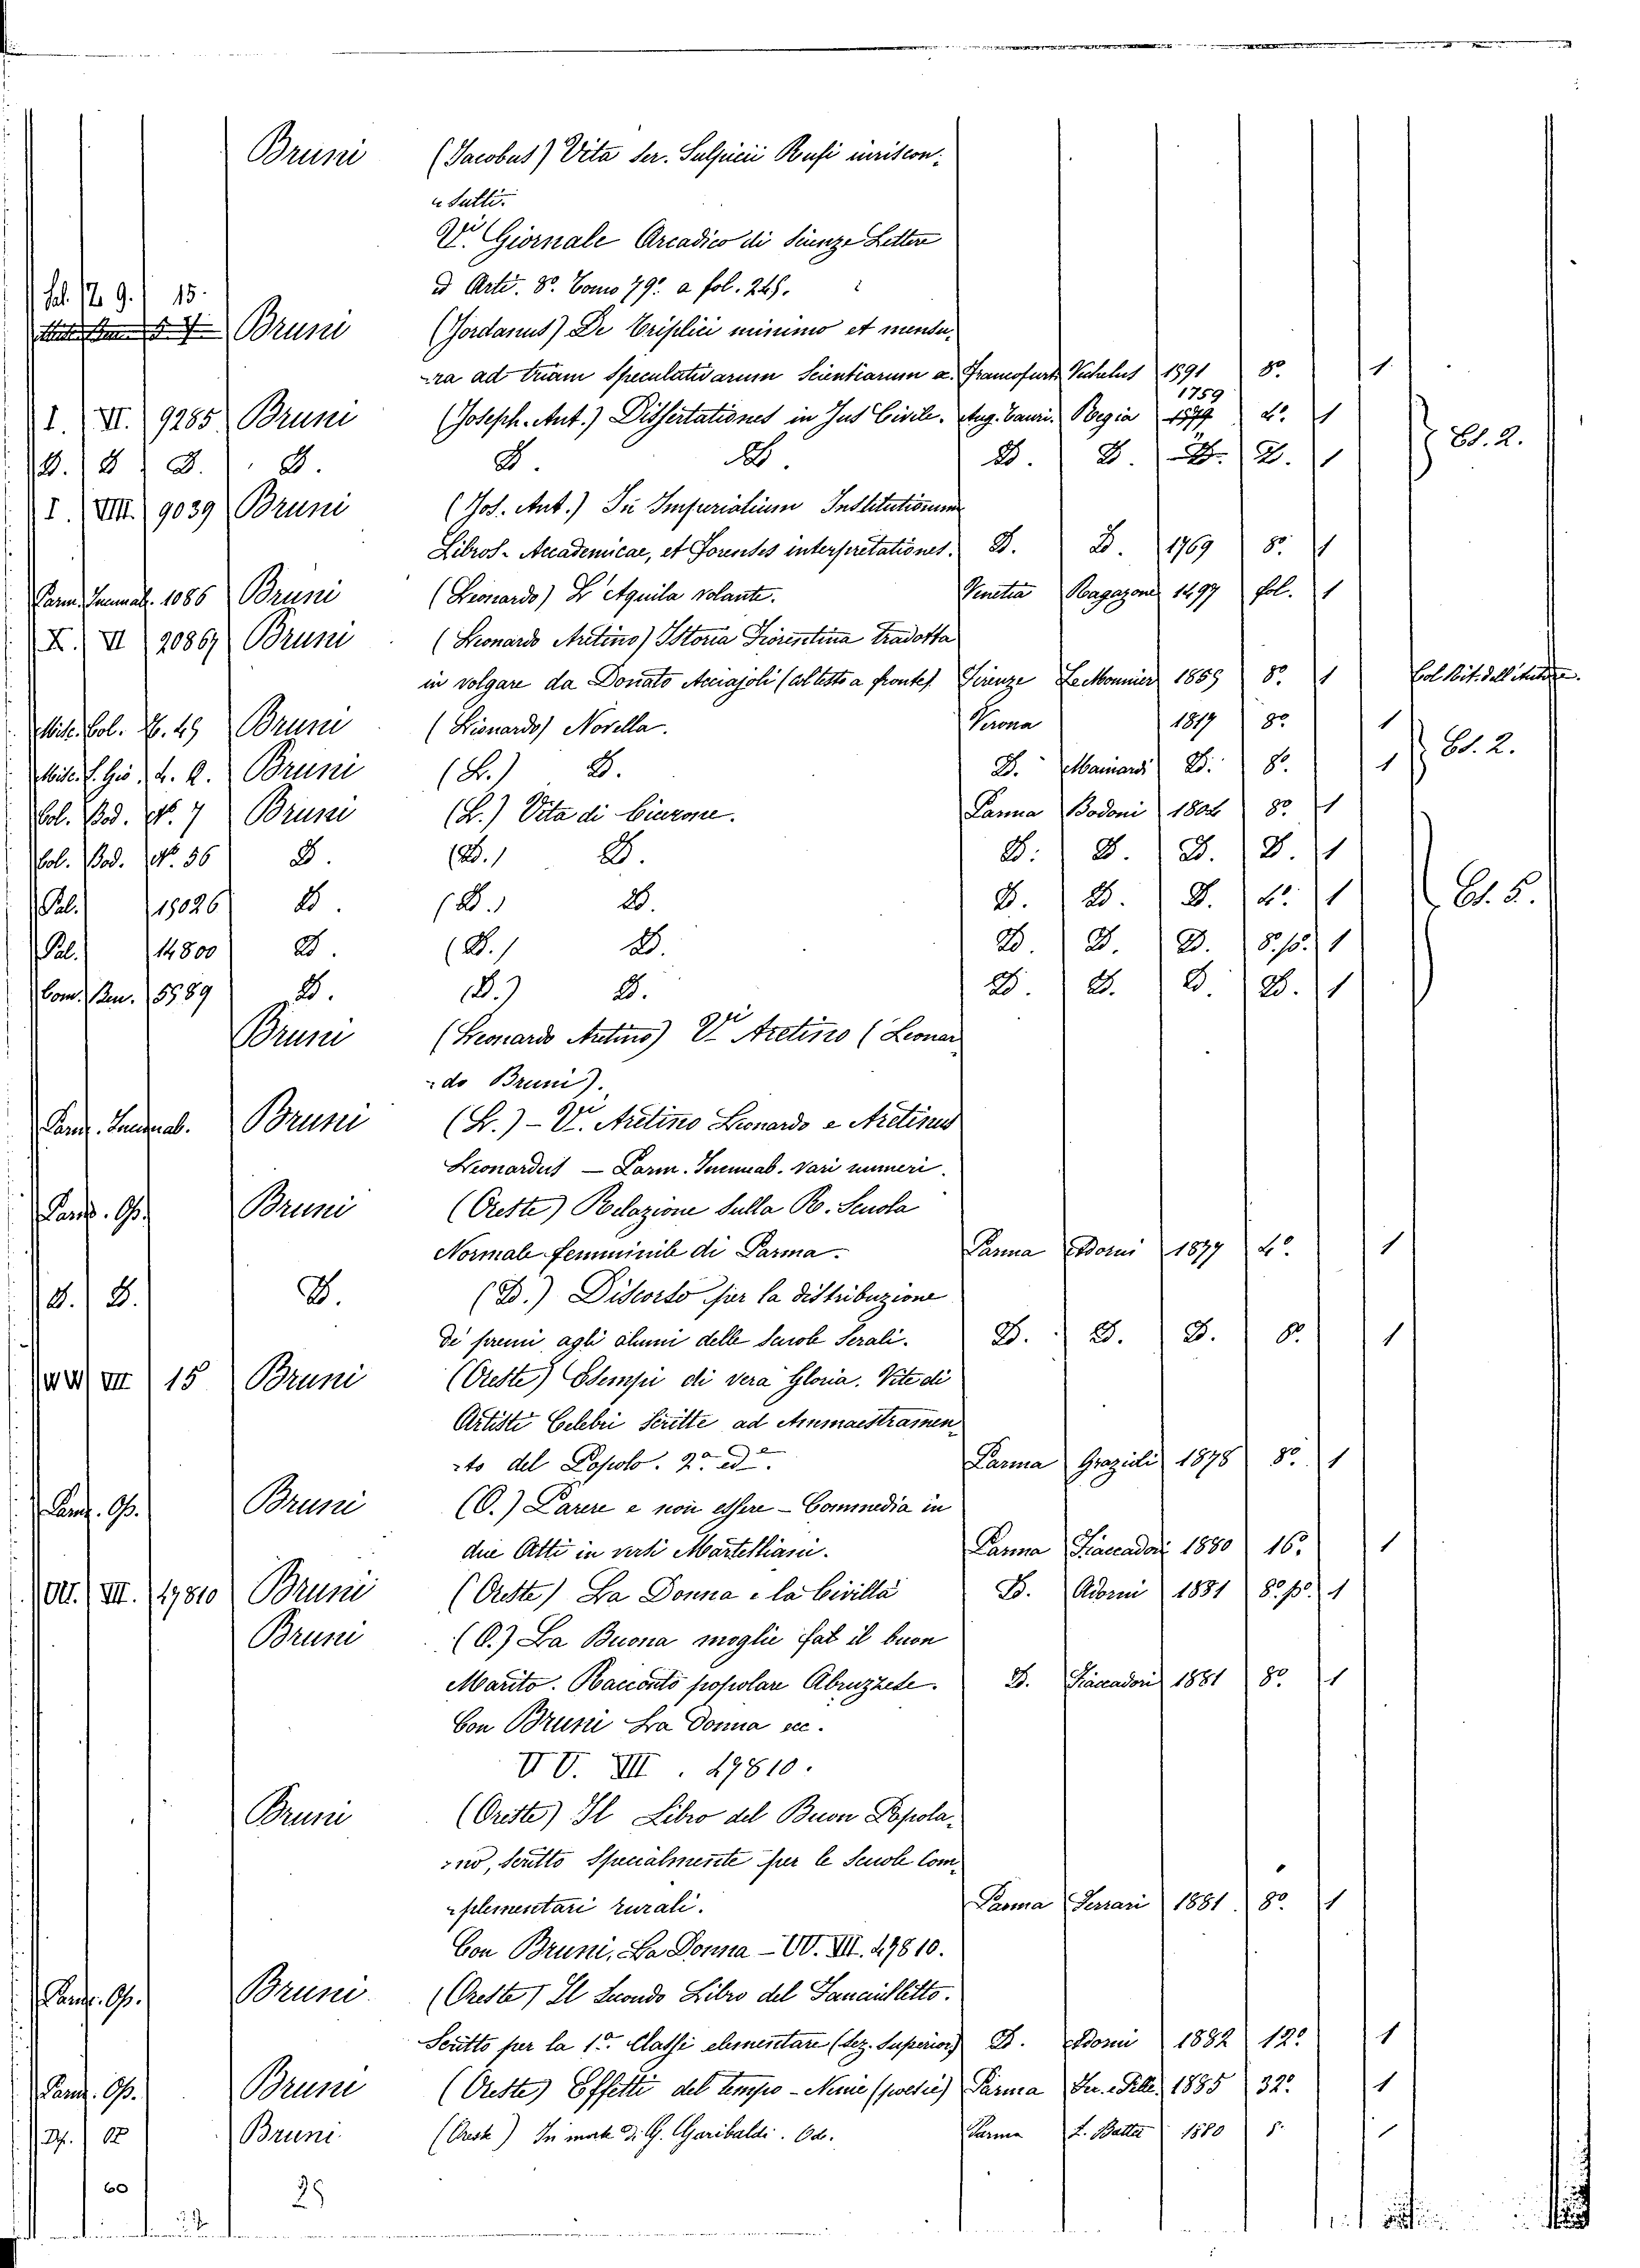 Bruni (Jacobus) Vita Ser. Sulpicii Rufi iuriscon-
sulti.
Vi. Giornale Arcadico di Scienze Lettere
ed Arti. 8o. Tomo 79o. a fol. 248.
15. Bruni (Jordanus) De triplici minimo et mensu-
ra ad trium Speculativarum Scientiarum &. Francofurti Vechelus 1591 8o. 1
I. VI. 9285 Bruni (Joseph. Ant.) Dissertationes in Jus Civile. Aug. Taurin. Regia 1759 4o. 1
D. D. D. D. D. D. D. D. D. 1 Es. 2.
I. VIII. 9039 Bruni (Jos. Ant.) In Imperialium Institutionum
Libros - Accademicae, et Forenses interpretationes. D. D. 1769 8o. 1
Parm. Incunab. 1086 Bruni (Leonardo) L'Aquila volante. Venetia Ragazone 1497 fol. 1
X. VI 20867 Bruni (Leonardo Aretino) Istoria Fiorentina tradotta
in volgare da Donato Acciajoli (col testo a fronte). Firenze Le Monnier 1859 8o. 1
Misc. Col. N. 49 Bruni (Lionardo) Novella. Verona 1817 8o. 1
Bruni (L.) D. D. Mainardi D. 8o. 1 Es. 2.
Col. Bod. No. 7 Bruni (L.) Vita di Cicerone. Parma Bodoni 1804 8o. 1
Col. Bod. No. 56 D. (D.) D. D. D. D. D. 1
Pal. 15026 D. (D.) D. D. D. D. 4o. 1 Es. 5.
Pal. 14800 D. (D.) D. D. D. D. 8o. p. 1
Com. Ben. 5589 D. (D.) D. D. D. D. D. 1
Bruni (Leonardo Aretino) Vi Aretino (Leonar-
do Bruni).
Parm. Incunab. Bruni (L.) - Vi. Aretino Leonardo e Aretinus
Leonardus - Parm. Incunab. vari numeri.
Parm. Op. Bruni (Oreste) Relazione sulla R. Scuola
Normale femminile di Parma. Parma Adorni 1877 4o. 1
D. D. D. (D.) Discorso per la distribuzione
di premi agli alunni delle Scuole Serali. D. D. D. 8o. 1
VIII 15 Bruni (Oreste) Esempi di vera Gloria. Vite di
Artisti Celebri scritte ad Ammaestramen-
to del Popolo. 2a. ede. Parma Grazioli 1878 8o. 1
Parm. Op. Bruni (O.) Parere e non essere - Commedia in
due Atti in versi Martelliani. Parma Fiaccadori 1880 16o. 1
VV. VII. 49810 Bruni (Oreste) La Donna e la Civiltà D. Adorni 1881 8o. p. 1
Bruni (O.) La Buona moglie fa il buon
Marito. Racconto popolare Abruzzese. D. Fiaccadori 1881 8o. 1
Con Bruni La Donna ecc.
VV. VII. 49810.
Bruni (Oreste) Il Libro del Buon Popola-
no, scritto Specialmente per le Scuole Com-
plementari rurali. Parma Ferrari 1881 8o. 1
Con Bruni, La Donna - VV. VII. 49810.
Parm. Op. Bruni (Oreste) Il Secondo Libro del Fanciulletto.
Scritto per la 1a. Classe elementare (Sez. Superiore) D. Adorni 1882 12o. 1
Parm. Op. Bruni (Oreste) Effetti del tempo - Nenie (poesie) Parma 1885 32o. 1
Bruni (Oreste) In morte di G. Garibaldi. Ode. Parma L. Battei 1880 8. 1
60 25